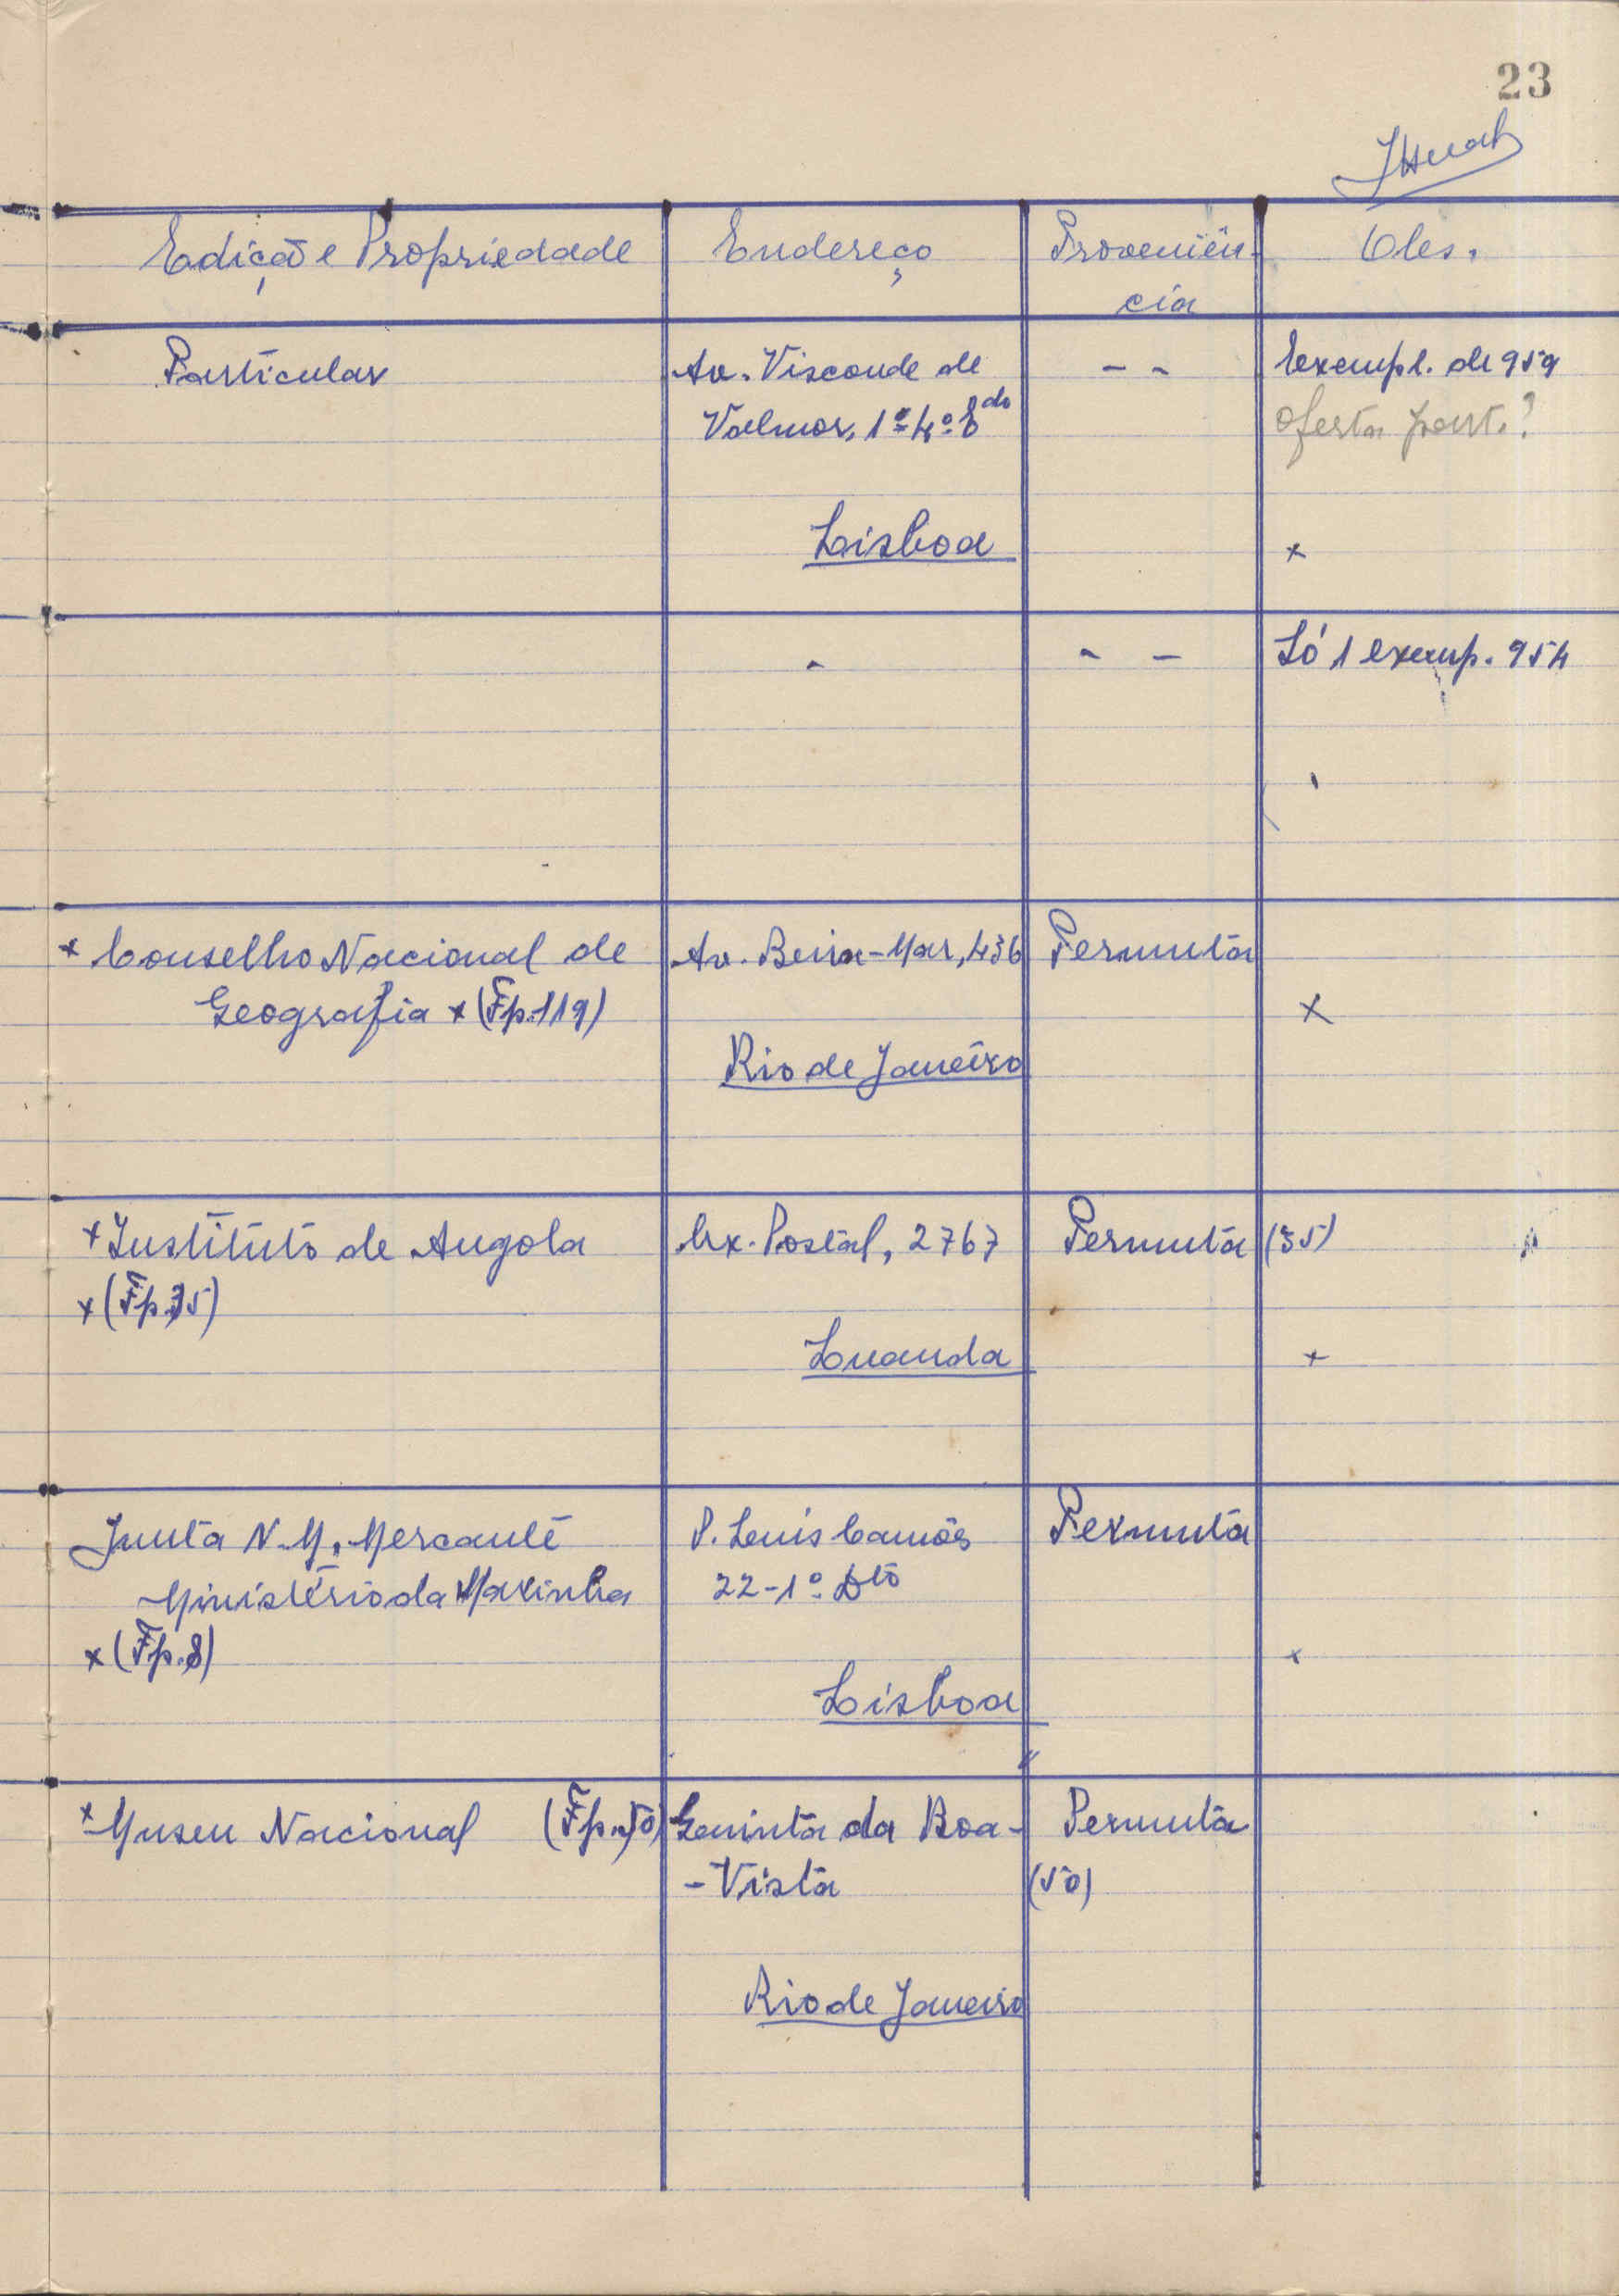 23
Edição e Propriedade Endereço Proveniên- Obs.
cia
Particular Av. Visconde de - - Exempl. de 959
Valmor, 1º 4º Edo oferta part.?
Lisboa x
- - - Só 1 exemp. 954
x Conselho Nacional de Av. Beira-Mar, 436 Permuta
Geografia x (Fp. 119) x
Rio de Janeiro
x Instituto de Angola Cx. Postal, 2767 Permuta (35)
x (Fp. 35)
Luanda x
Junta N. M. Mercante P. Luis Camões Permuta
Ministério da Marinha 22-1º Dto
x (Fp. 8) x
Lisboa
x Museu Nacional (Fp. 50) Quinta da Boa- Permuta
-Vista (50)
Rio de Janeiro